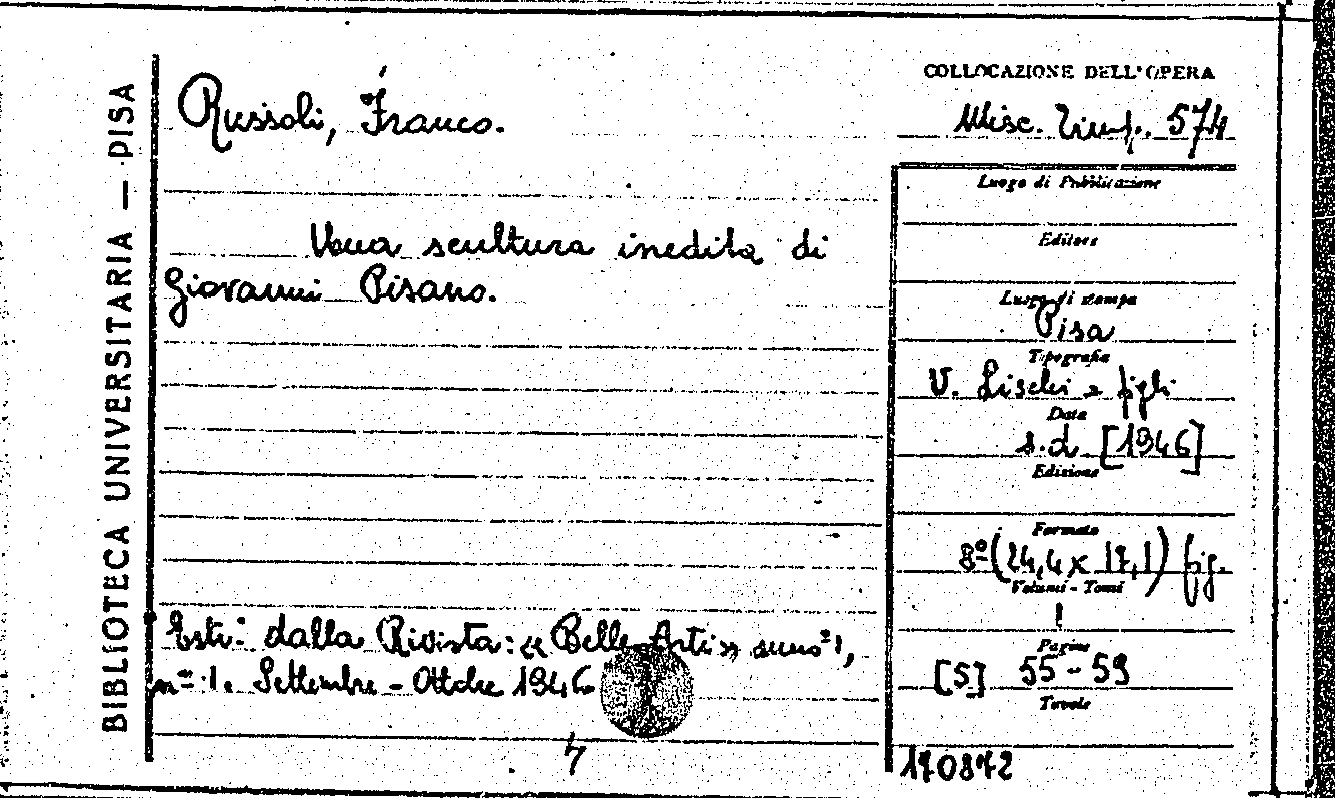 BIBLIOTECA UNIVERSITARIA — PISA
Russoli, Franco.
Una scultura inedita di
Giovanni Pisano.
Estr. dalla Rivista: « Belle Arti » anno 1,
nº 1. Settembre - Ottobre 1946
4
COLLOCAZIONE DELL'OPERA
Misc. 574
Luogo di Pubblicazione
Editore
Luogo di stampa
Pisa
Tipografia
V. Lischi e figli
Data
s.d. [1946]
Edizione
Formato
8º (24,4 x 17,1) fig.
Volumi - Tomi
1
Pagine
[5] 55-59
Tavole
170872